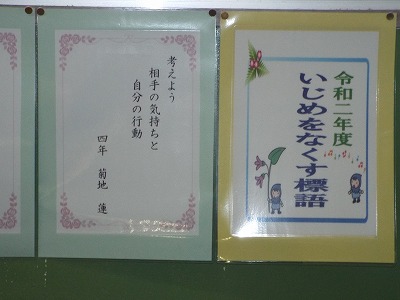 令和二年度
いじめをなくす標語
考えよう
相手の気持ちと
自分の行動
四年 菊地 蓮